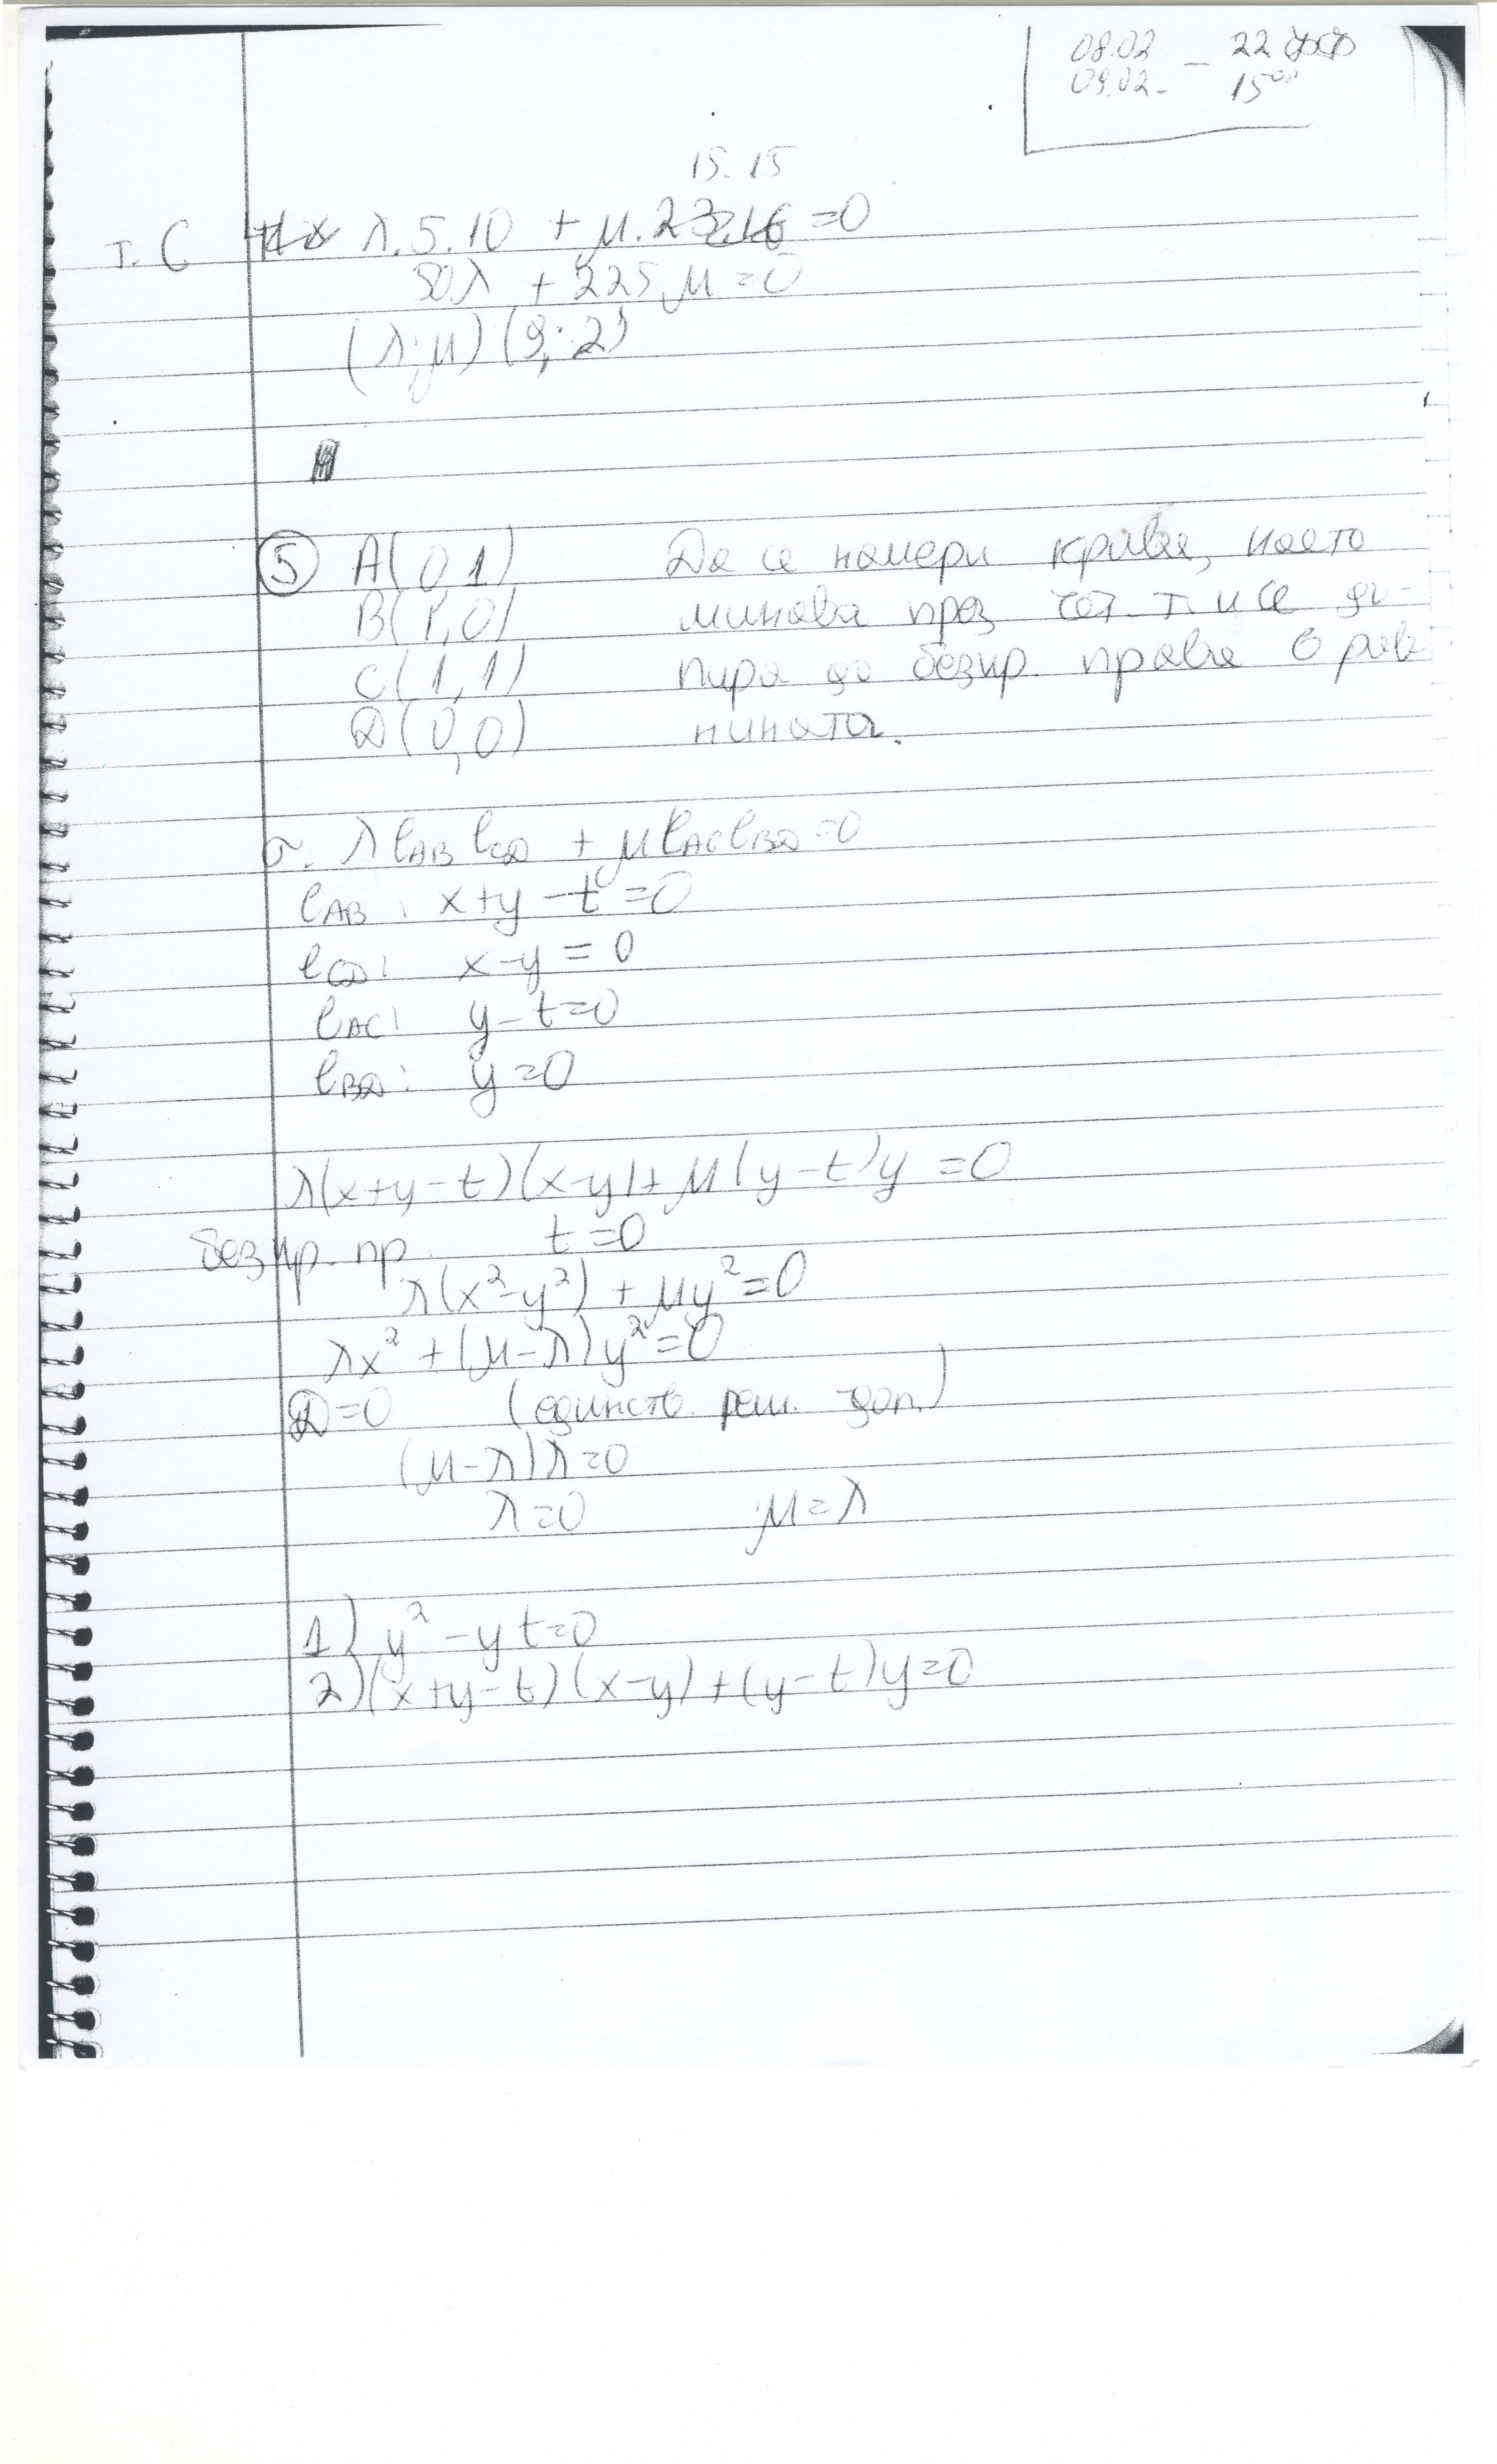 08.02 – 22
09.02 - 15⁰⁰
15.15
т. C λ.5.10 + μ. =0
50λ + 225μ =0
(λ;μ) (9;2)
5 A(0,1) Да се намери крива, която
B(1,0) минава през чет. т. и се до-
C(1,1) пира до безкр. права в рав-
D(0,0) нината.
σ. λ l_AB l_CD + μ l_AC l_BD =0
l_AB : x+y-t=0
l_CD : x-y=0
l_AC : y-t=0
l_BD : y=0
λ(x+y-t)(x-y)+μ(y-t)y=0
безкр. пр. t=0
λ(x²-y²) + μy²=0
λx² + (μ-λ)y²=0
D=0 (единств. реш. доп.)
(μ-λ)λ=0
λ=0 μ=λ
1) y²-yt=0
2) (x+y-t)(x-y)+(y-t)y=0